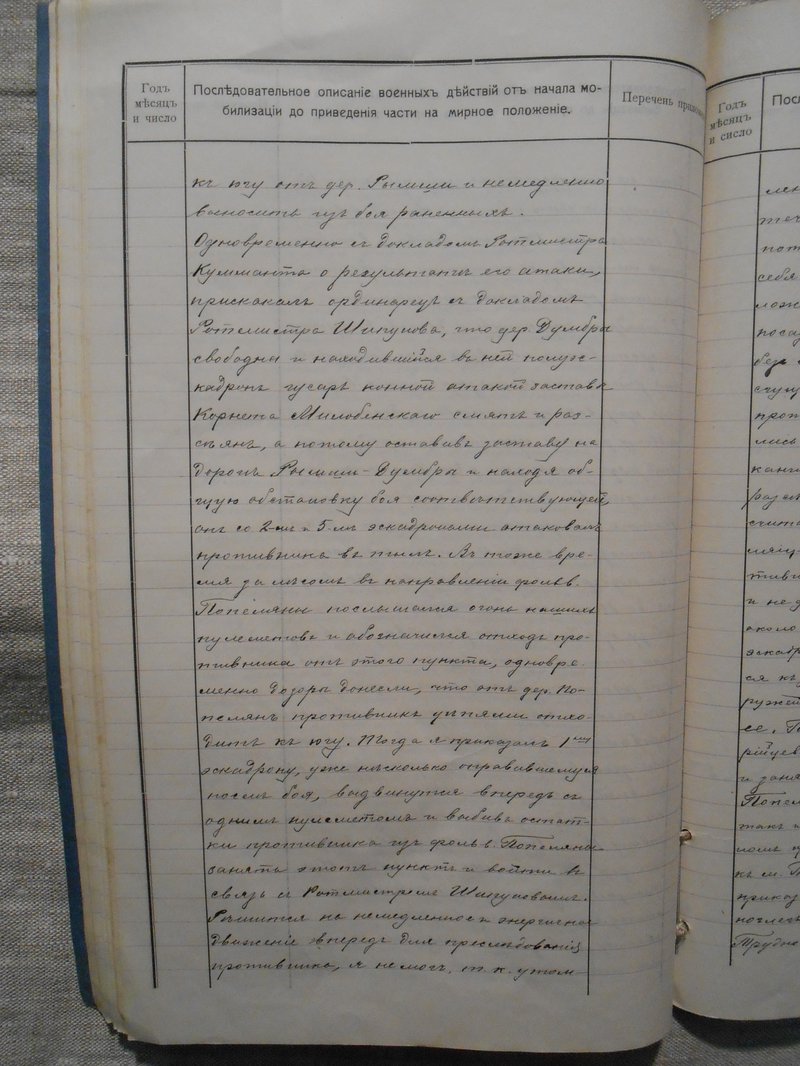 Годъ
мѣсяцъ
и число
Послѣдовательное описаніе военныхъ дѣйствій отъ начала мо-
билизаціи до приведенія части на мирное положеніе.
Перечень прилож
Годъ
мѣсяцъ
и сисло
Посл
къ югу отъ дер. Рымши и немедленно
выносить изъ боя раненныхъ.
Одновременно съ докладомъ Ротмистра
Кумманта о результатѣ его атаки,
прискакалъ ординарецъ съ докладомъ
Ротмистра Шипунова, что дер. Думбры
свободна и находившійся въ ней полуэс-
кадронъ гусаръ конной атакой заставы
Корнета Милобенскаго смятъ и раз-
сѣянъ, а потому оставивъ заставу на
дорогѣ Рымши-Думбры и находя об-
щую обстановку боя соотвѣтствующей,
онъ со 2-мъ и 5-мъ эскадронами атаковалъ
противника въ тылъ. Въ тоже вре-
мя за лѣсомъ въ направленіи фольв.
Попеляны послышался огонь нашихъ
пулеметовъ и обозначился отходъ про-
тивника отъ этого пункта, одновре
менно дозоры донесли, что отъ дер. По-
пелянъ противникъ цѣпями отхо-
дитъ къ югу. Тогда я приказалъ 1му
эскадрону, уже нѣсколько оправившемуся
послѣ боя, выдвинутся впередъ съ
однимъ пулеметомъ и выбивъ остат-
ки противника изъ фольв. Попеляны
занять этотъ пунктъ и войти въ
связь съ Ротмистромъ Шипуновымъ.
Рѣшится на немедленное и энергичное
движеніе впередъ для преслѣдованія
противника, я не могъ, т. к. утом
лен
теч
пот
себя
лож
поса
безъ
случ
прот
лись
разъ
счита
тивн
и не д
около
эскадр
ся къ
ружей
се. П
рійцев
и заня
Попел
такъ и
къ м. П
приказ
ночлег
Трудно